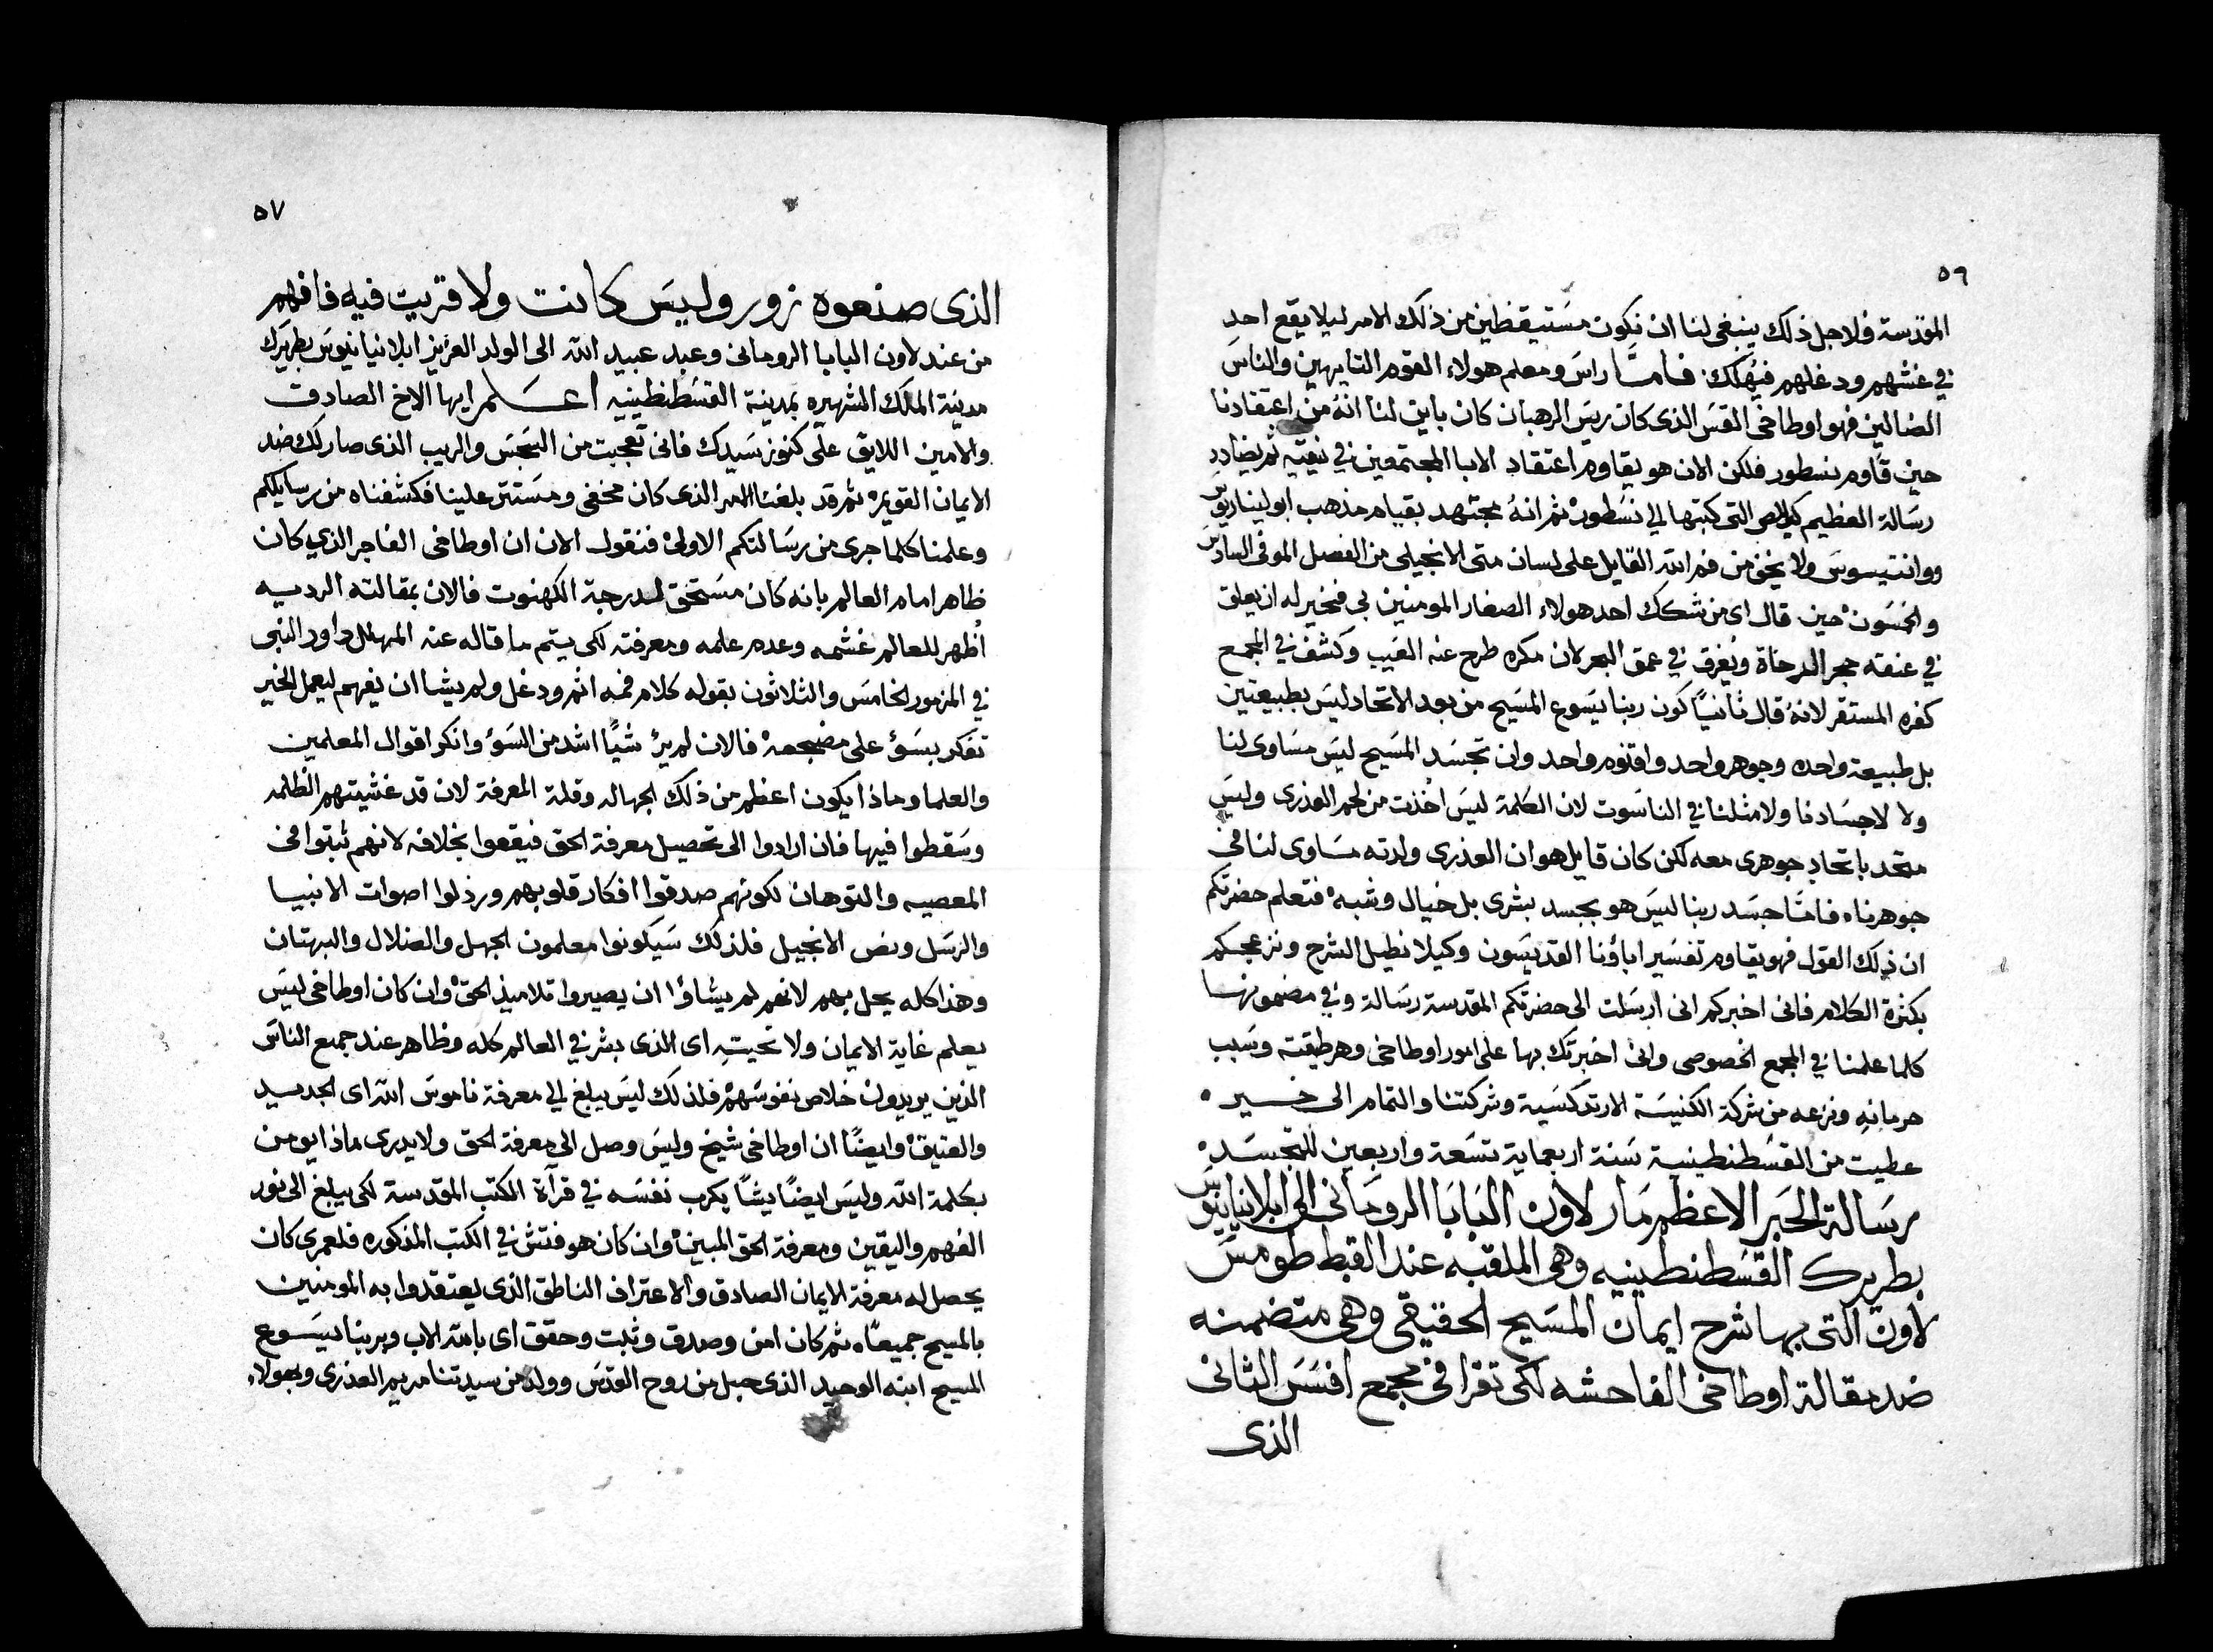 ٥٦
المقدسة فلاجل ذلك ينبغي لنا ان نكون مستيقظين من ذلك الامر ليلا يقع احد
في غشهم ودغلهم فيهلك فامّا راس ومعلم هولاء القوم التايهين والناس
الضالين فهو اوطاخي القس الذي كان ريس الرهبان كان باين لنا انهُ من اعتقادنا
حين قاوم نسطور فلكن الان هو يقاوم اعتقاد الابا المجتمعين في نيقيه ثم يضادد
رسالة العظيم كيرللص التي كتبها الي نسطور ثم انهُ مجتهد بقيام مذهب ابوليناريوس
ووانتيسوس ولا يخف من فم الله القايل على لسان متى الانجيلي من الفصل الموفي السادس
والخمسون حين قال اي من شكك احد هولاء الصغار المومنين بي فخير له ان يعلق
في عنقه حجر الرحاة ويُغرق في عمق البحر لان مكره طرح عنه العيب وكشف في المجمع
كفره المستقر لانهُ قال ثانيًا كون ربنا يسوع المسيح من بعد الاتحاد ليس بطبيعتين
بل طبيعة واحده وجوهر واحد واقنوم واحد وان تجسد المسيح ليس مساوي لنا
ولا لاجسادنا ولا مثلنا في الناسوت لان الكلمة ليس اخذت من لحم العذري وليس
متحد باتحاد جوهري معه لكن كان قايل هو ان العذري ولدته مساوي لنا في
جوهرناه فامّا جسد ربنا ليس هو بجسد بشري بل خيال وشبه فتعلم حضرتكم
ان ذلك القول فهو يقاوم تفسير اباؤنا القديسون وكيلا نطيل الشرح ونزعجكم
بكثرة الكلام فاني اخبركم اني ارسلت الى حضرتكم المقدسة رسالة وفي مضمونها
كلما علمنا في المجمع الخصوصي واني اخبرتك بها على امور اوطاخي وهرطيقته وسبب
حرمانه ونزعه من شركة الكنيسة الارتدكسية وشركتنا والتمام الى خيره
عطيت من القسطنطينية سنة اربعماية تسعة واربعين للتجسده
رسالة الحبر الاعظم مار لاون البابا الروحاني الى ابلانيانوس
بطريرك القسطنطينيه وهي الملقبه عند القبط طومس
لاون التي بها شرح ايمان المسيح الحقيقي وهي متضمنه
ضد مقالة اوطاخي الفاحشه لكي تقرا في مجمع افسس الثاني
الذي
٥٧
الذي صنعوه زور وليس كانت ولا قريت فيه فافهم
من عند لاون البابا الروماني وعبد عبيد الله الى الولد العزيز ابلانيانيوس بطريرك
مدينة الملك الشهيره بمدينة القسطنطينيه اعلم ايها الاخ الصادق
والامين اللايق على كنوز سيدك فاني تعجبت من السجس والريب الذي صار لك ضد
الايمان القويم ثم قد بلغنا الامر الذي كان مخفي ومستتر علينا فكشفناه من رسايلكم
وعلمنا كلما جرى من رسالتكم الاولى فنقول الان ان اوطاخي الفاجر الذي كان
ظاهر امام العالم بانه كان مستحق لدرجة الكهنوت فالان بمقالته الرديه
أظهر للعالم غشمه وعدم علمه ومعرفته لكي يتم ما قاله عنه المهلل داود النبي
في المزمور الخامس والثلاثون بقوله كلام فمه اثم ودغل ولم يشا ان يفهم ليعمل الخير
تفكر بسؤ على مضجعه فالان لم يرُ شيًا اشد من السؤ وانكر اقوال المعلمين
والعلما وماذا يكون اعظم من ذلك الجهاله وقلة المعرفة لان قد غشيتهم الظلمه
وسقطوا فيها فان ارادوا الى تحصيل معرفة الحق فيقعوا بخلافه لانهم ثبتوا في
المعصيه والتوهان لكونهم صدقوا افكار قلوبهم ورذلوا اصوات الانبيا
والرسل ونص الانجيل فلذلك سيكونوا معلمون الجهل والضلال والبهتان
وهذا كله يحل بهم لانهم لم يشاؤا ان يصيروا تلاميذ الحق وان كان اوطاخي ليس
يعلم غاية الايمان ولا تحيته اي الذي بشر في العالم كله وظاهر عند جميع الناس
الذين يريدون خلاص نفوسهم فلذلك ليس يبلغ الي معرفة ناموس الله اي الجديد
والعتيق وايضًا ان اوطاخي شيخ وليس وصل الى معرفة الحق ولا يدري ماذا يومن
بكلمة الله وليس ايضًا يشا يكرب نفسه في قرآة الكتب المقدسة لكي يبلغ الى نور
الفهم واليقين ومعرفة الحق المبين وان كان هو فتش في الكتب المذكوره فلعمري كان
يحصل له معرفة الايمان الصادق والاعتراف الناطق الذي يعتقدوا به المومنين
بالمسيح جميعًا ثم كان امن وصدق وثبت وحقق اي بالله الاب وبربنا يسوع
المسيح ابنه الوحيد الذي حبل من روح القدس وولد من سيدتنا مريم العذري وبهولاء